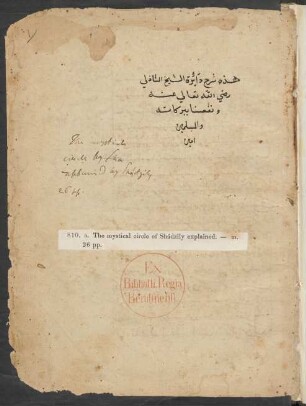 هذه شرح دائرة الشيخ الشاذلي
رضي الله تعالى عنه
ونفعنا ببركاته
والمسلمين
امين
The mystical
circle by Sha
explained by
26 pp
810. a. The mystical circle of Shâdzily explained. — m.
26 pp.
Ex
Biblioth. Regia
Berolinenfi.